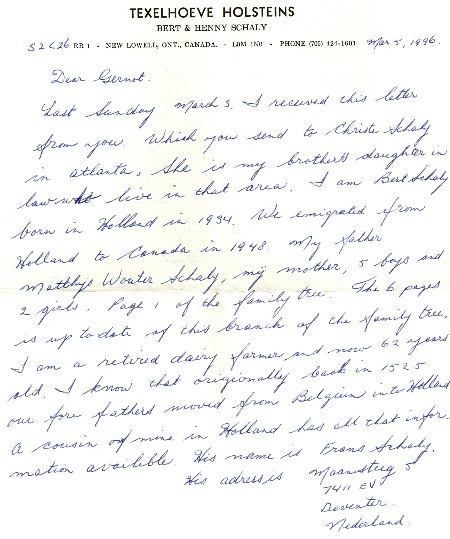 TEXELHOEVE HOLSTEINS
BERT & HENNY SCHALY
S2 C26 RR 1 - NEW LOWELL, ONT., CANADA. - L0M 1N0 - PHONE (705) 424-1601 Mar 5, 1996.
Dear Gernot.
Last Sunday March 3, I received this letter
from you. Which you send to Christe Schaly
in atlanta, She is my brother's daughter in
law who live in that area. I am Bert Schaly
born in Holland in 1934. We emigrated from
Holland to Canada in 1948. My father
Matthys Wouter Schaly, my mother, 5 boys and
2 girls. Page 1 of the family tree. The 6 pages
is up to date of this branch of the family tree.
I am a retired dairy farmer and now 62 years
old. I know that origionally back in 1525
our fore fathers moved from Belgium into Holland
A cousin of mine in Holland has all that infor.
mation availible. His name is Frans Schaly.
His adress is Maansteeg 5
7411 EV
Deventer.
Nederland.